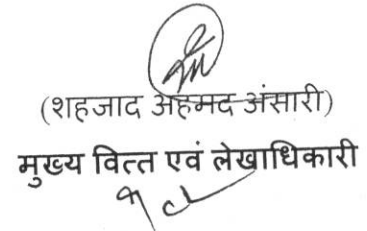 (शहजाद अहमद अंसारी)
मुख्य वित्त एवं लेखाधिकारी